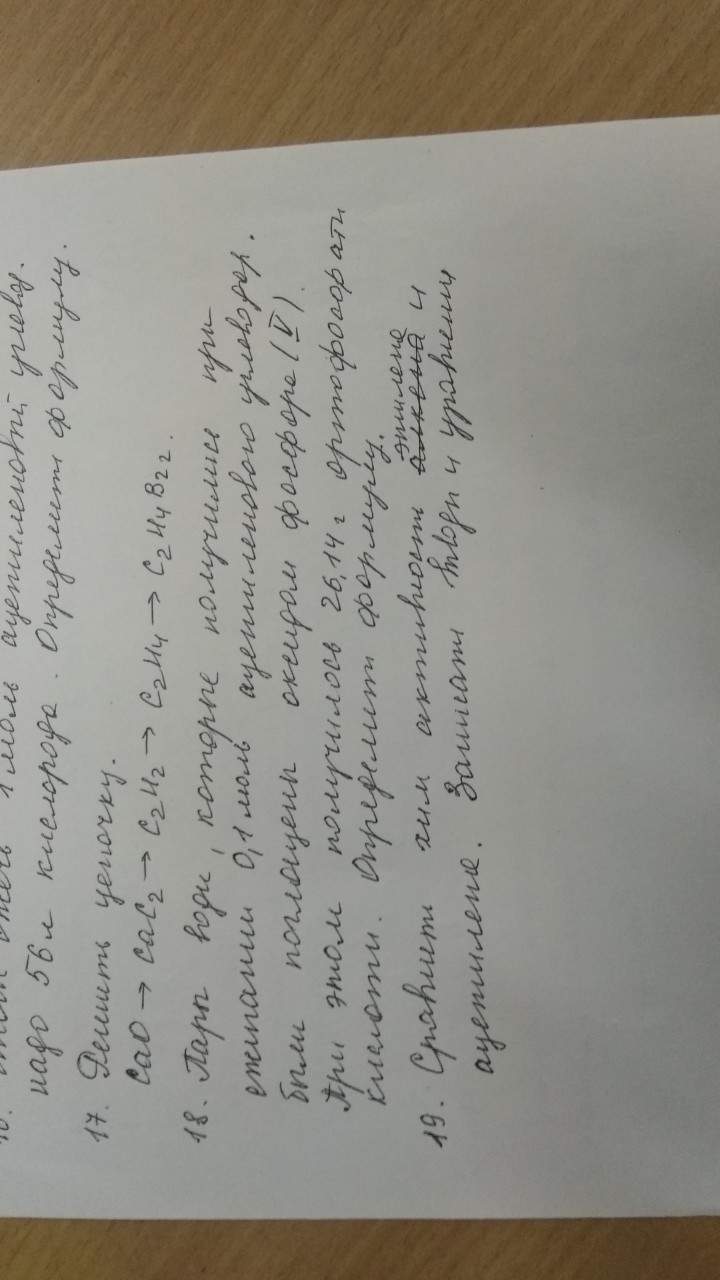 1 моль ацетиленовый углевод.
надо 56 л кислорода. Определить формулу.
17. Решить цепочку.
CaO → CaC2 → C2H2 → C2H4 → C2H4Br2.
18. Пары воды, которые получились при
сжигании 0,1 моль ацетиленового углеводор.
были поглощены оксидом фосфора (V).
При этом получилось 26,14 г ортофосфорати
кислоты. Определить формулу.
19. Сравнить хим активность этилена и
ацетилена. Записать выводы и уравнени